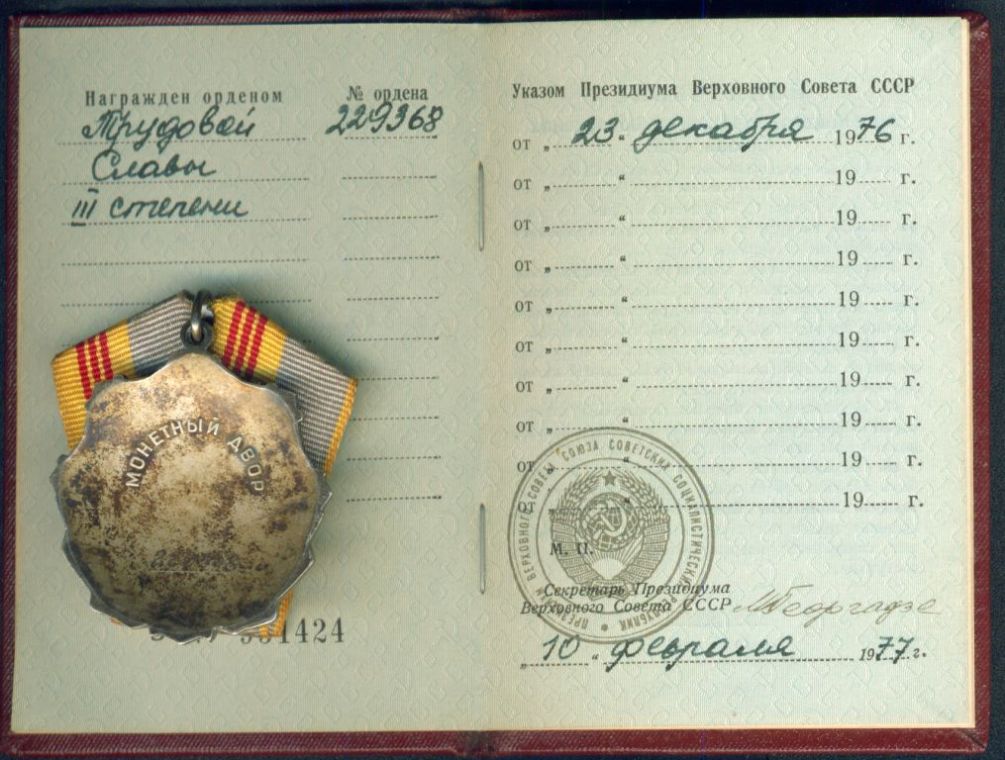 Награжден орденом
№ ордена
Трудовой
229368
Славы
III степени
МОНЕТНЫЙ ДВОР
1424
Указом Президиума Верховного Совета СССР
от „ 23 “ декабря 1976 г.
от „ “ 19 г.
от „ “ 19 г.
от „ “ 19 г.
от „ “ 19 г.
от „ “ 19 г.
от „ “ 19 г.
от „ “ 19 г.
от „ “ 19 г.
от „ “ 19 г.
ПРЕЗИДИУМ ВЕРХОВНОГО СОВЕТА СОЮЗА СОВЕТСКИХ СОЦИАЛИСТИЧЕСКИХ РЕСПУБЛИК
М. П.
Секретарь Президиума
Верховного Совета СССР
МГеоргадзе
„ 10 “ февраля 1977 г.